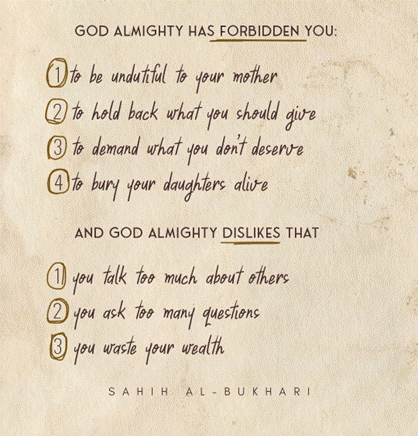 GOD ALMIGHTY HAS FORBIDDEN YOU:
1 to be undutiful to your mother
2 to hold back what you should give
3 to demand what you don't deserve
4 to bury your daughters alive
AND GOD ALMIGHTY DISLIKES THAT
1 you talk too much about others
2 you ask too many questions
3 you waste your wealth
SAHIH AL-BUKHARI